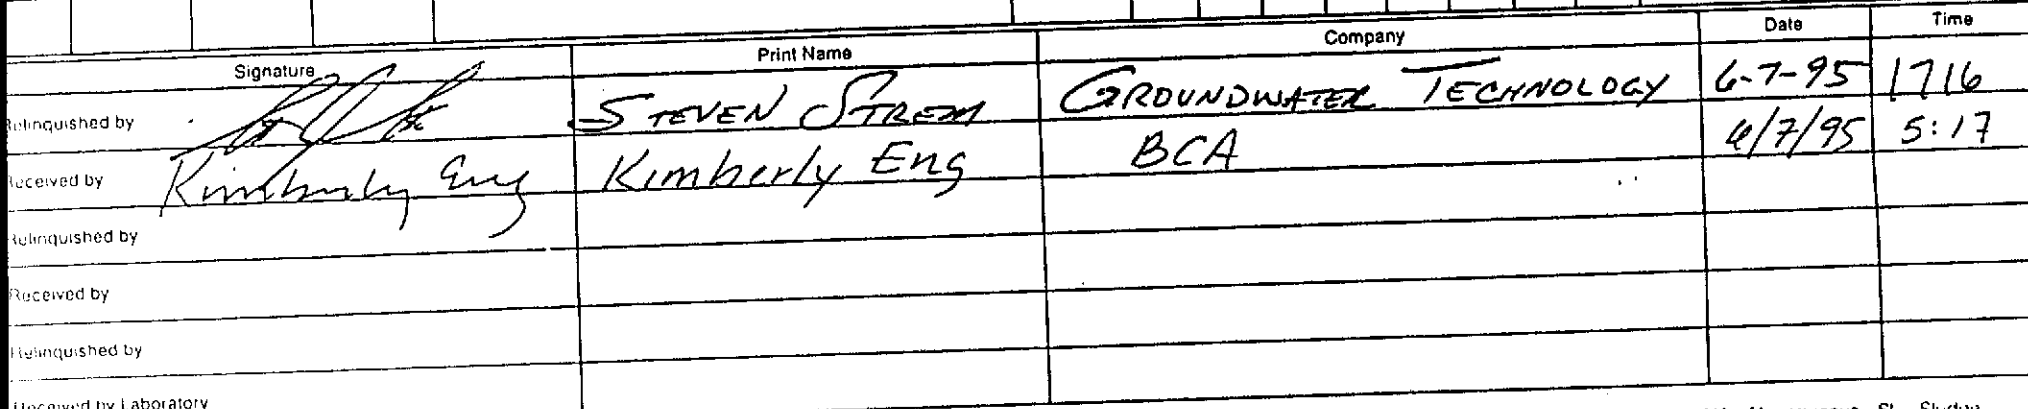 Signature Print Name Company Date Time
Relinquished by STEVEN STREM GROUNDWATER TECHNOLOGY 6-7-95 1716
Received by Kimberly Eng Kimberly Eng BCA 6/7/95 5:17
Relinquished by
Received by
Relinquished by
Received by Laboratory
Sludge